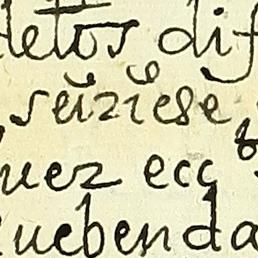 letos dif
seuziese
uez ecc
uebenda